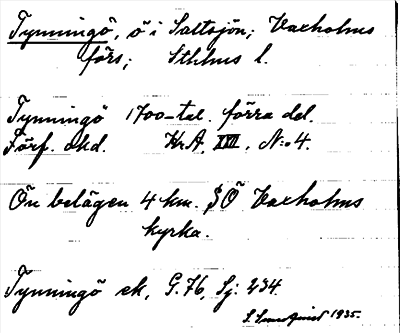 Tynningö, ö i Saltsjön; Vaxholms
förs; Sthlms l.
Tynningö 1700-tal. förra del.
Förf. okd. Kr.A. XVI, N:o 4.
Ön belägen 4 km. SÖ Vaxholms
kyrka.
Tynningö ek, G.76, Sj: 234.
1935.